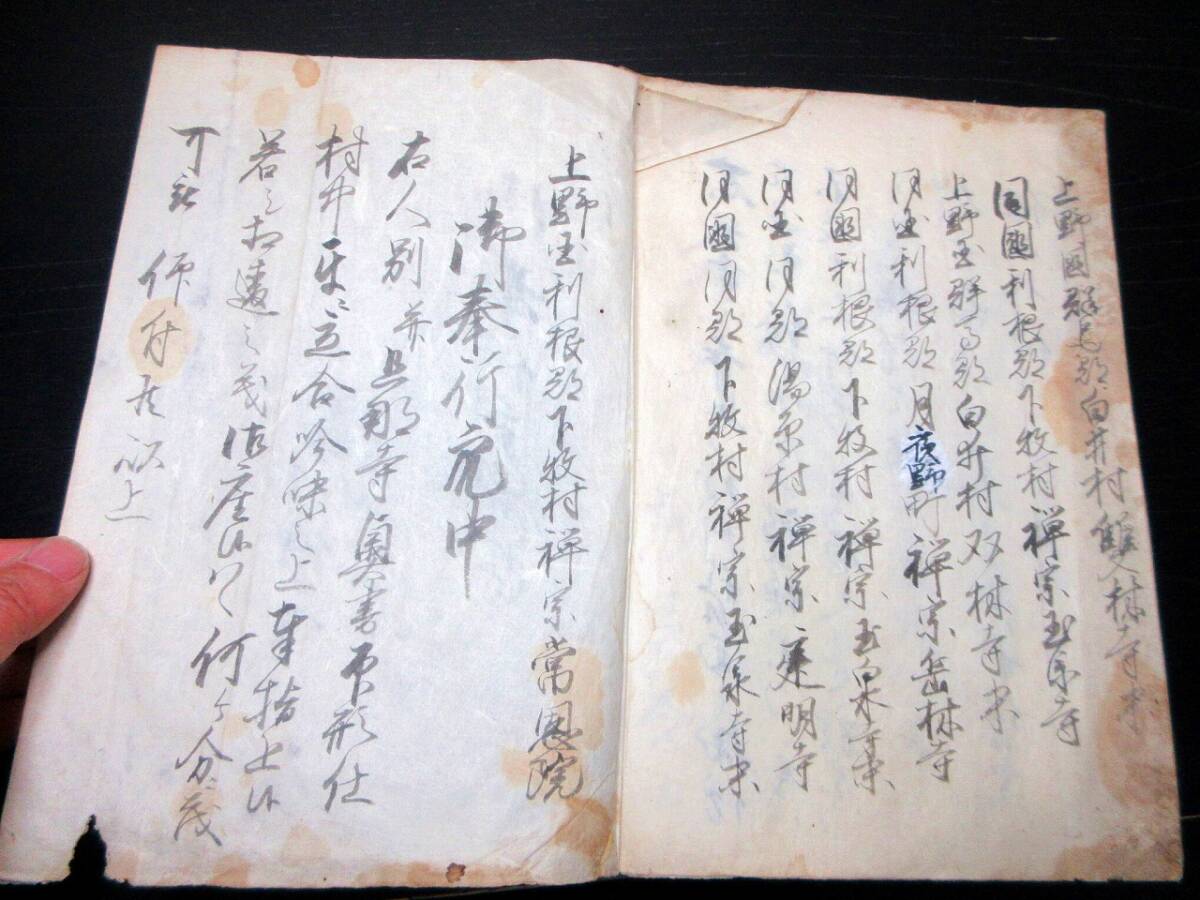 上野國群馬郡白井村雙林寺末
同國利根郡下牧村禅宗玉泉寺
上野国群馬郡白井村双林寺末
同国利根郡月夜野町禅宗岳林寺
同國利根郡下牧村禅宗玉泉寺末
同国同郡湯原村禅宗建明寺
同國同郡下牧村禅宗玉泉寺末
上野国利根郡下牧村禅宗常恩院
御奉行所中
右人別并旦那寺奥書印形仕
村中不残立合吟味之上奉指上候
若シ相違之義御座候ハヽ何ケ分茂
可被仰付候以上